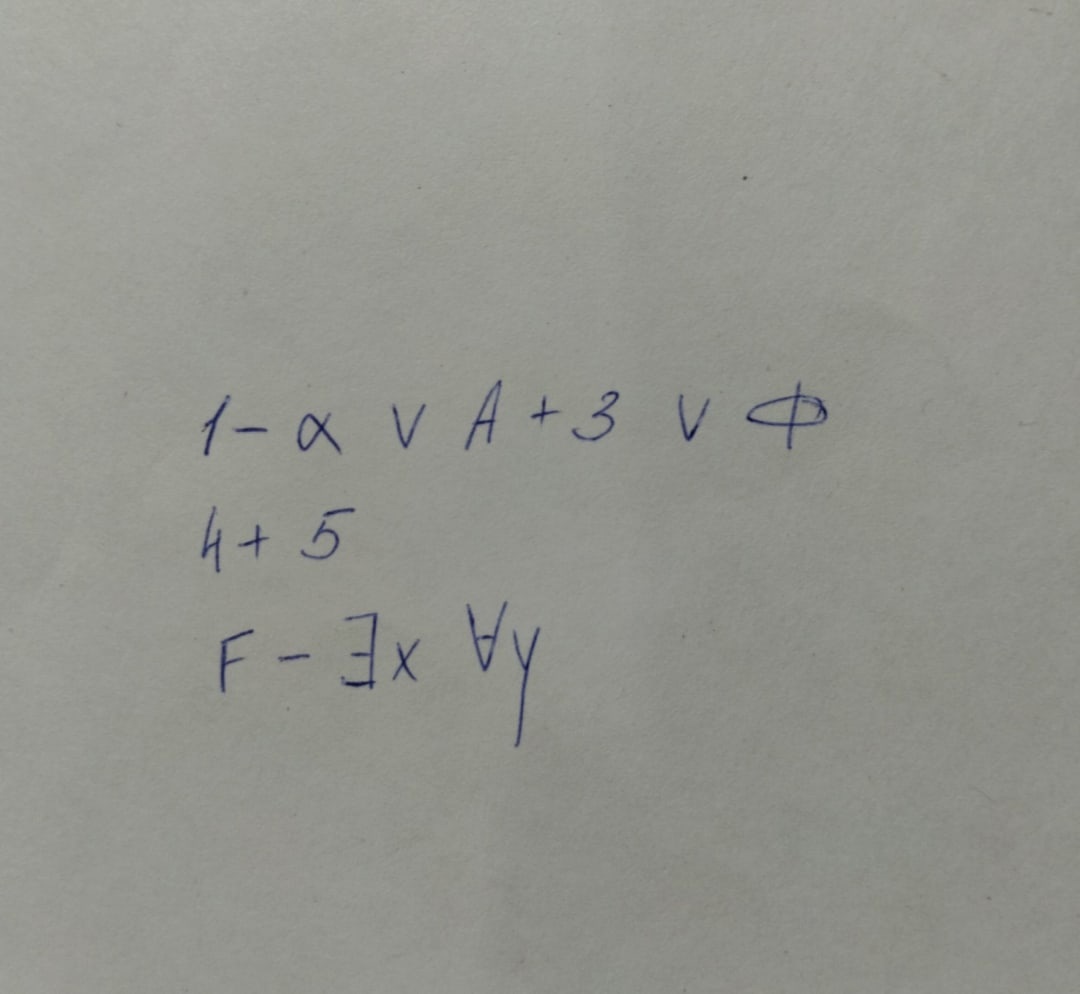 1 - α ∨ A + 3 ∨ Φ
4 + 5
F - ∃x ∀y